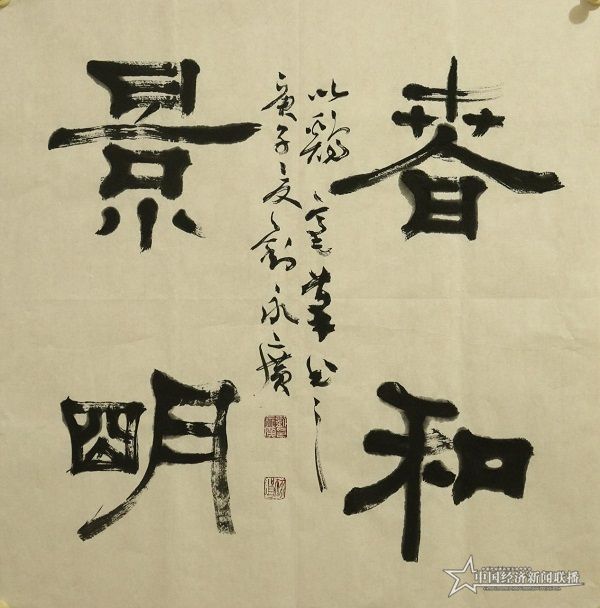 春和
景明
以鷄毫筆書之
庚子夏劉永廣
中国经济新闻联播